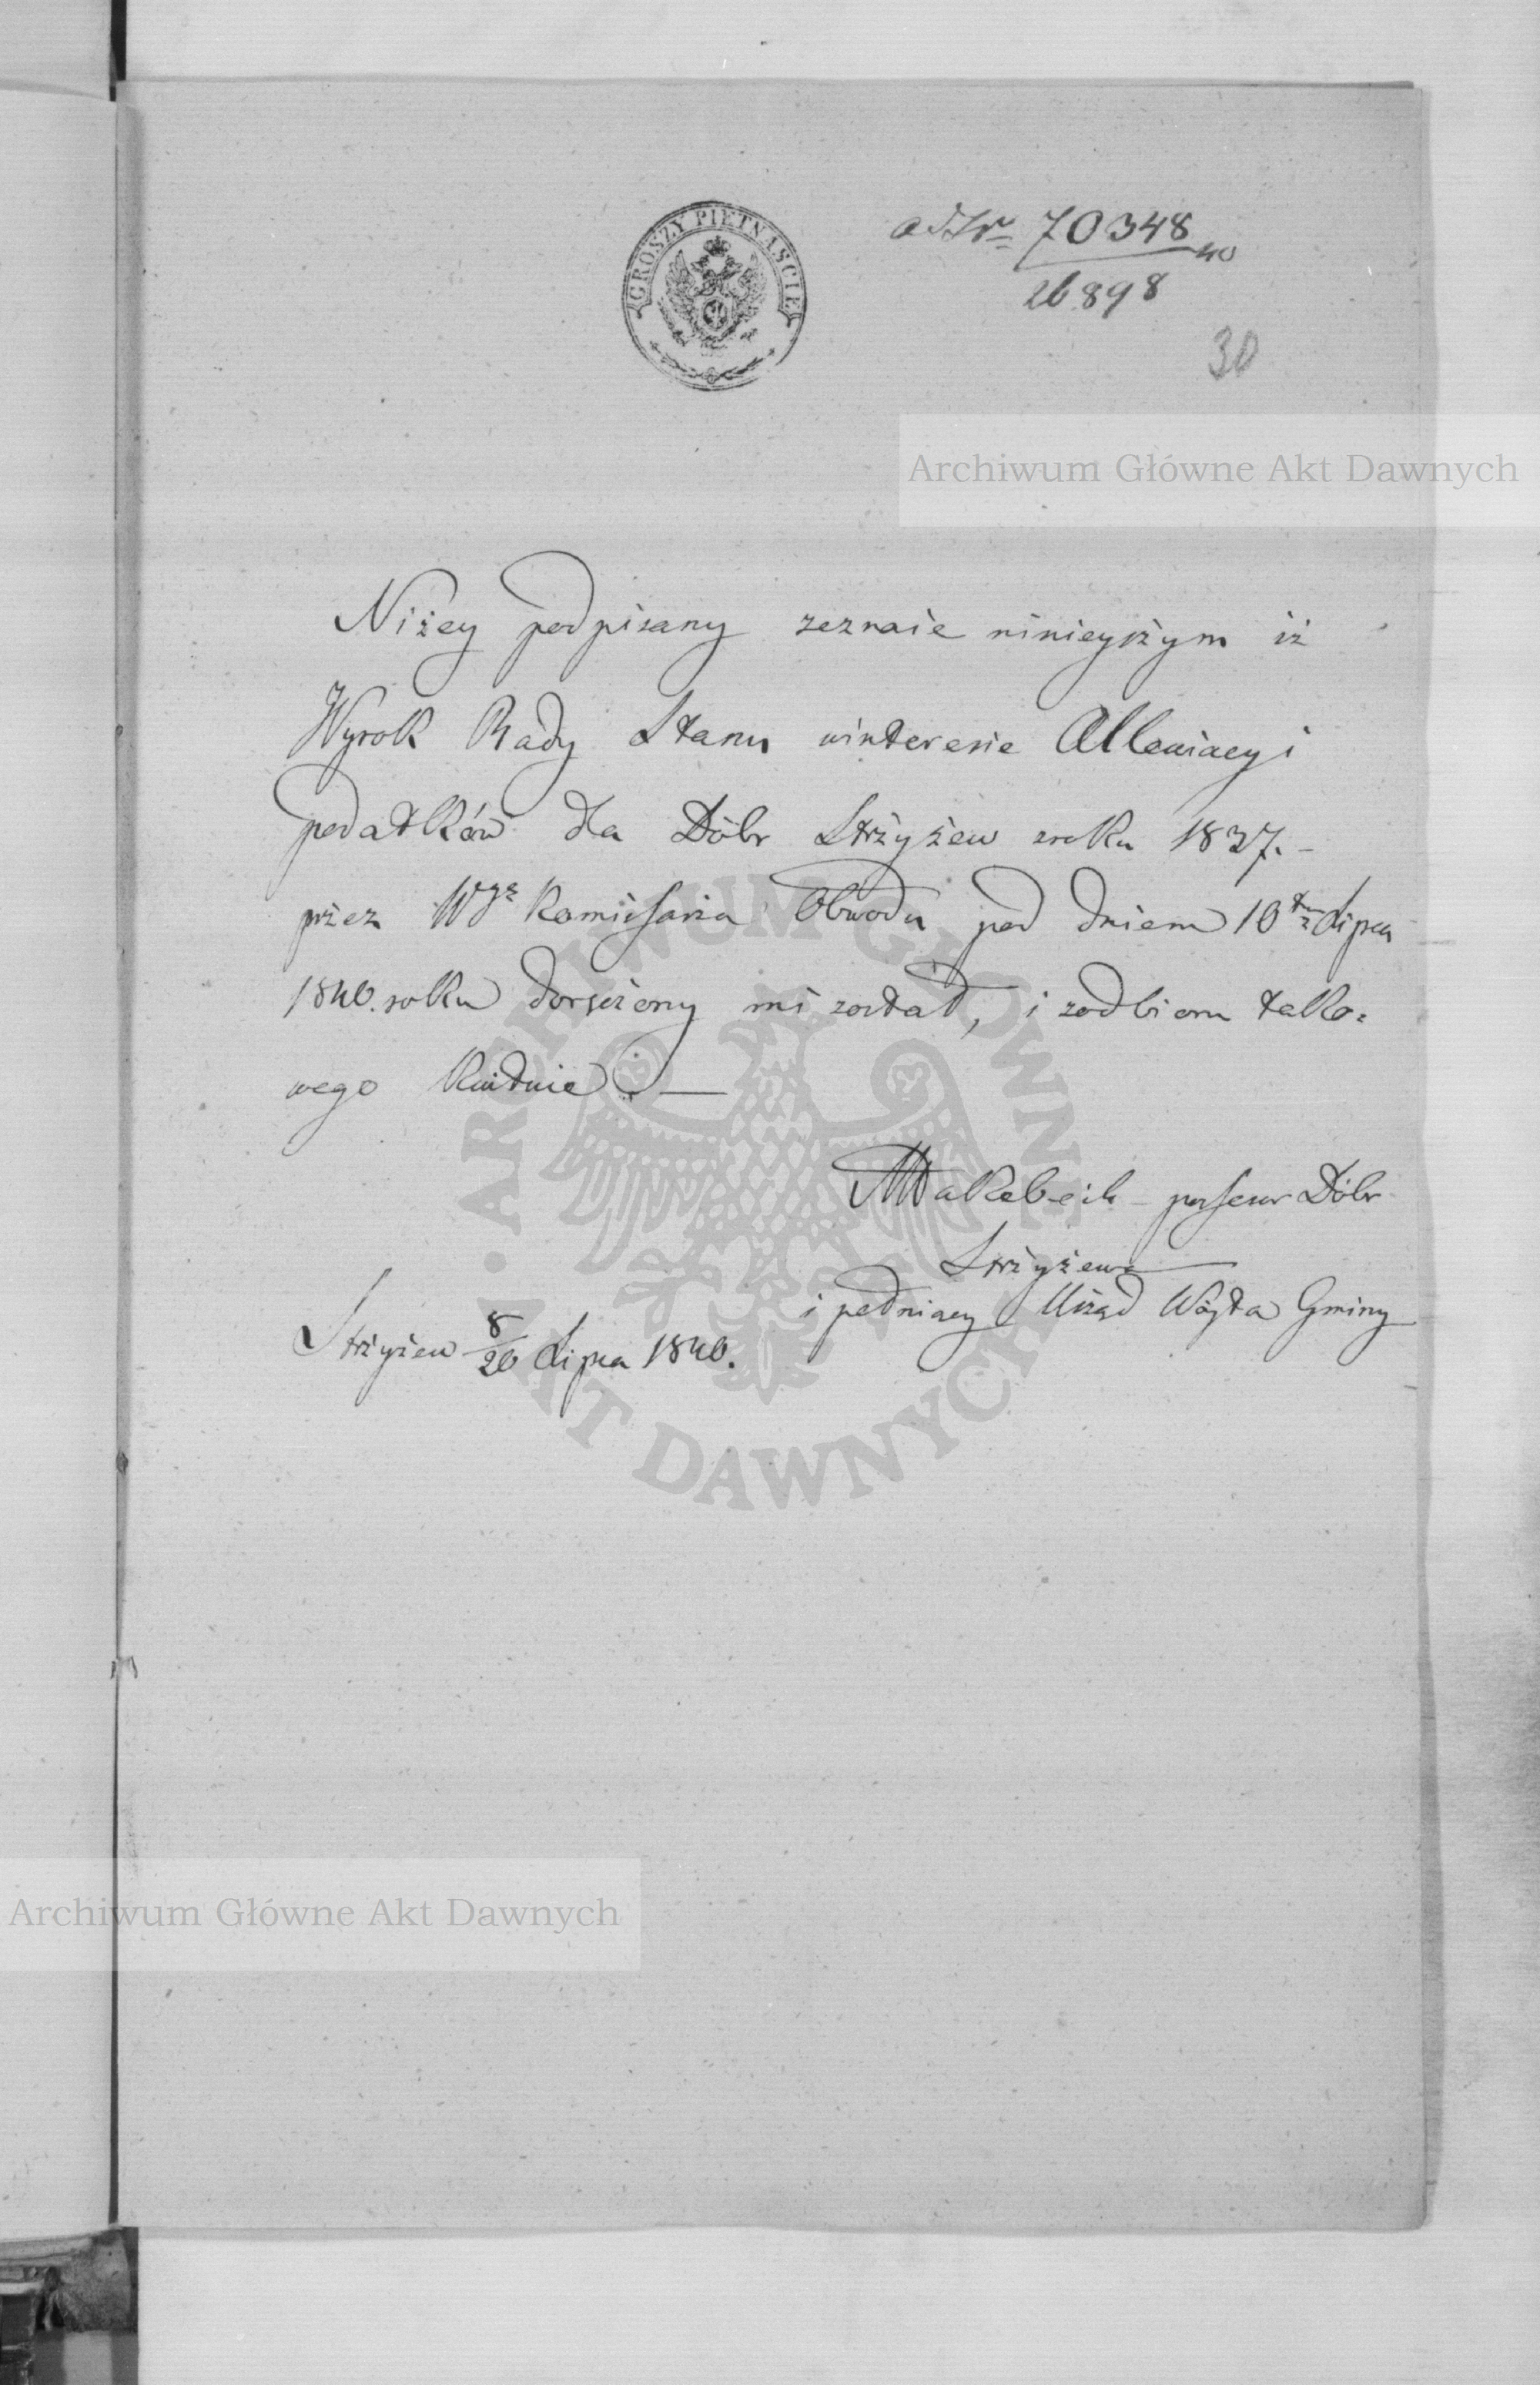 GROSZY PIĘTNAŚCIE
ad Nr 70348
40
26898
30
Archiwum Główne Akt Dawnych
Niżey podpisany zeznaie ninieyszym iż
Wyrok Rady Stanu winteresie Allewiacyi
podatków dla Dóbr Strzyżew zroku 1837.-
przez Wgo Komissarza Obwodu pod dniem 10 Lipca
1840. roku doręczony mi został, i zodbioru tako=
wego kwituie. —
possessor Dóbr
Strżyżewa
i pełniący Urząd Wójta Gminy
Strżyżew 8/20 Lipca 1840.
ARCHIWUM GŁÓWNE AKT DAWNYCH
Archiwum Główne Akt Dawnych